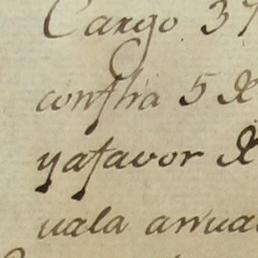 Cargo 37
constra 5 de
yafavor de
uala anua